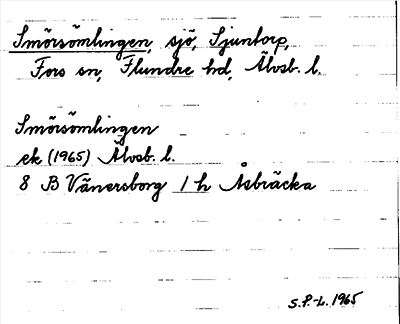 Smörsömlingen, sjö, Sjuntorp,
Fors sn, Flundre hd, Älvsb. l.
Smörsömlingen
ek (1965) Älvsb. l.
8 B Vänersborg 1 h Åsbräcka
S.P.-L. 1965